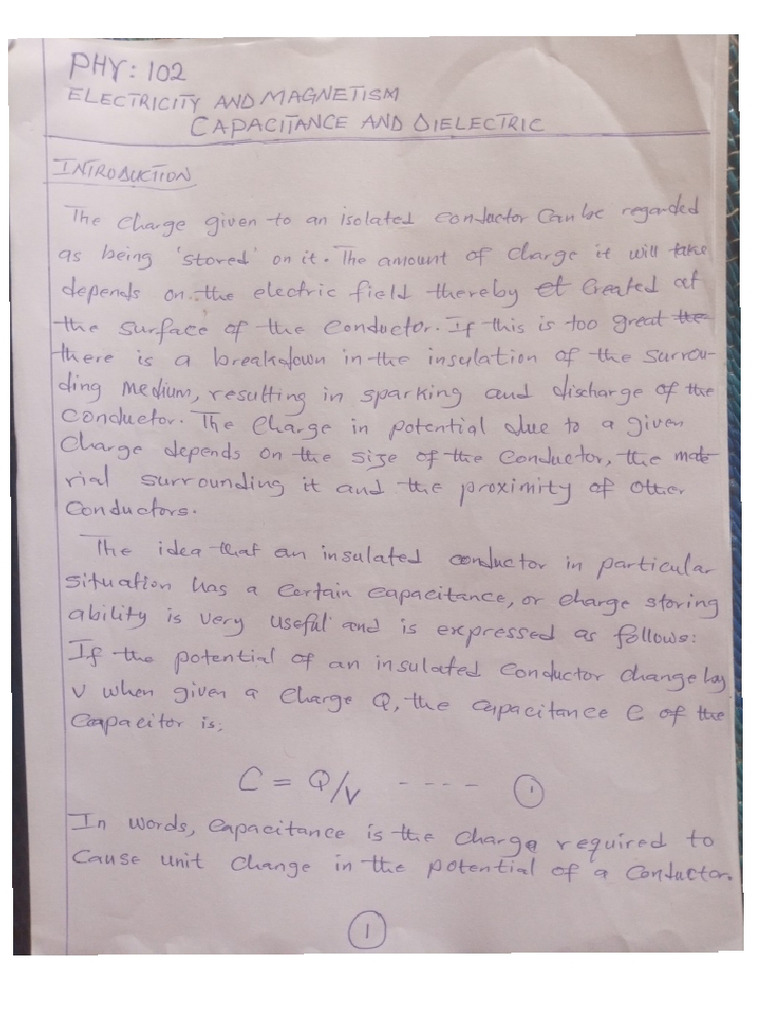 PHY: 102
ELECTRICITY AND MAGNETISM
CAPACITANCE AND DIELECTRIC
INTRODUCTION
The charge given to an isolated conductor can be regarded
as being 'stored' on it. The amount of charge it will take
depends on the electric field thereby et created at
the surface of the conductor. If this is too great the
there is a breakdown in the insulation of the surrou-
ding medium, resulting in sparking and discharge of the
conductor. The charge in potential due to a given
charge depends on the size of the conductor, the mate
rial surrounding it and the proximity of other
conductors.
The idea that an insulated conductor in particular
situation has a certain capacitance, or charge storing
ability is very useful and is expressed as follows:
If the potential of an insulated conductor change by
V when given a charge Q, the capacitance C of the
capacitor is;
C = Q/V ---- 1
In words, capacitance is the charge required to
cause unit change in the potential of a conductor.
1